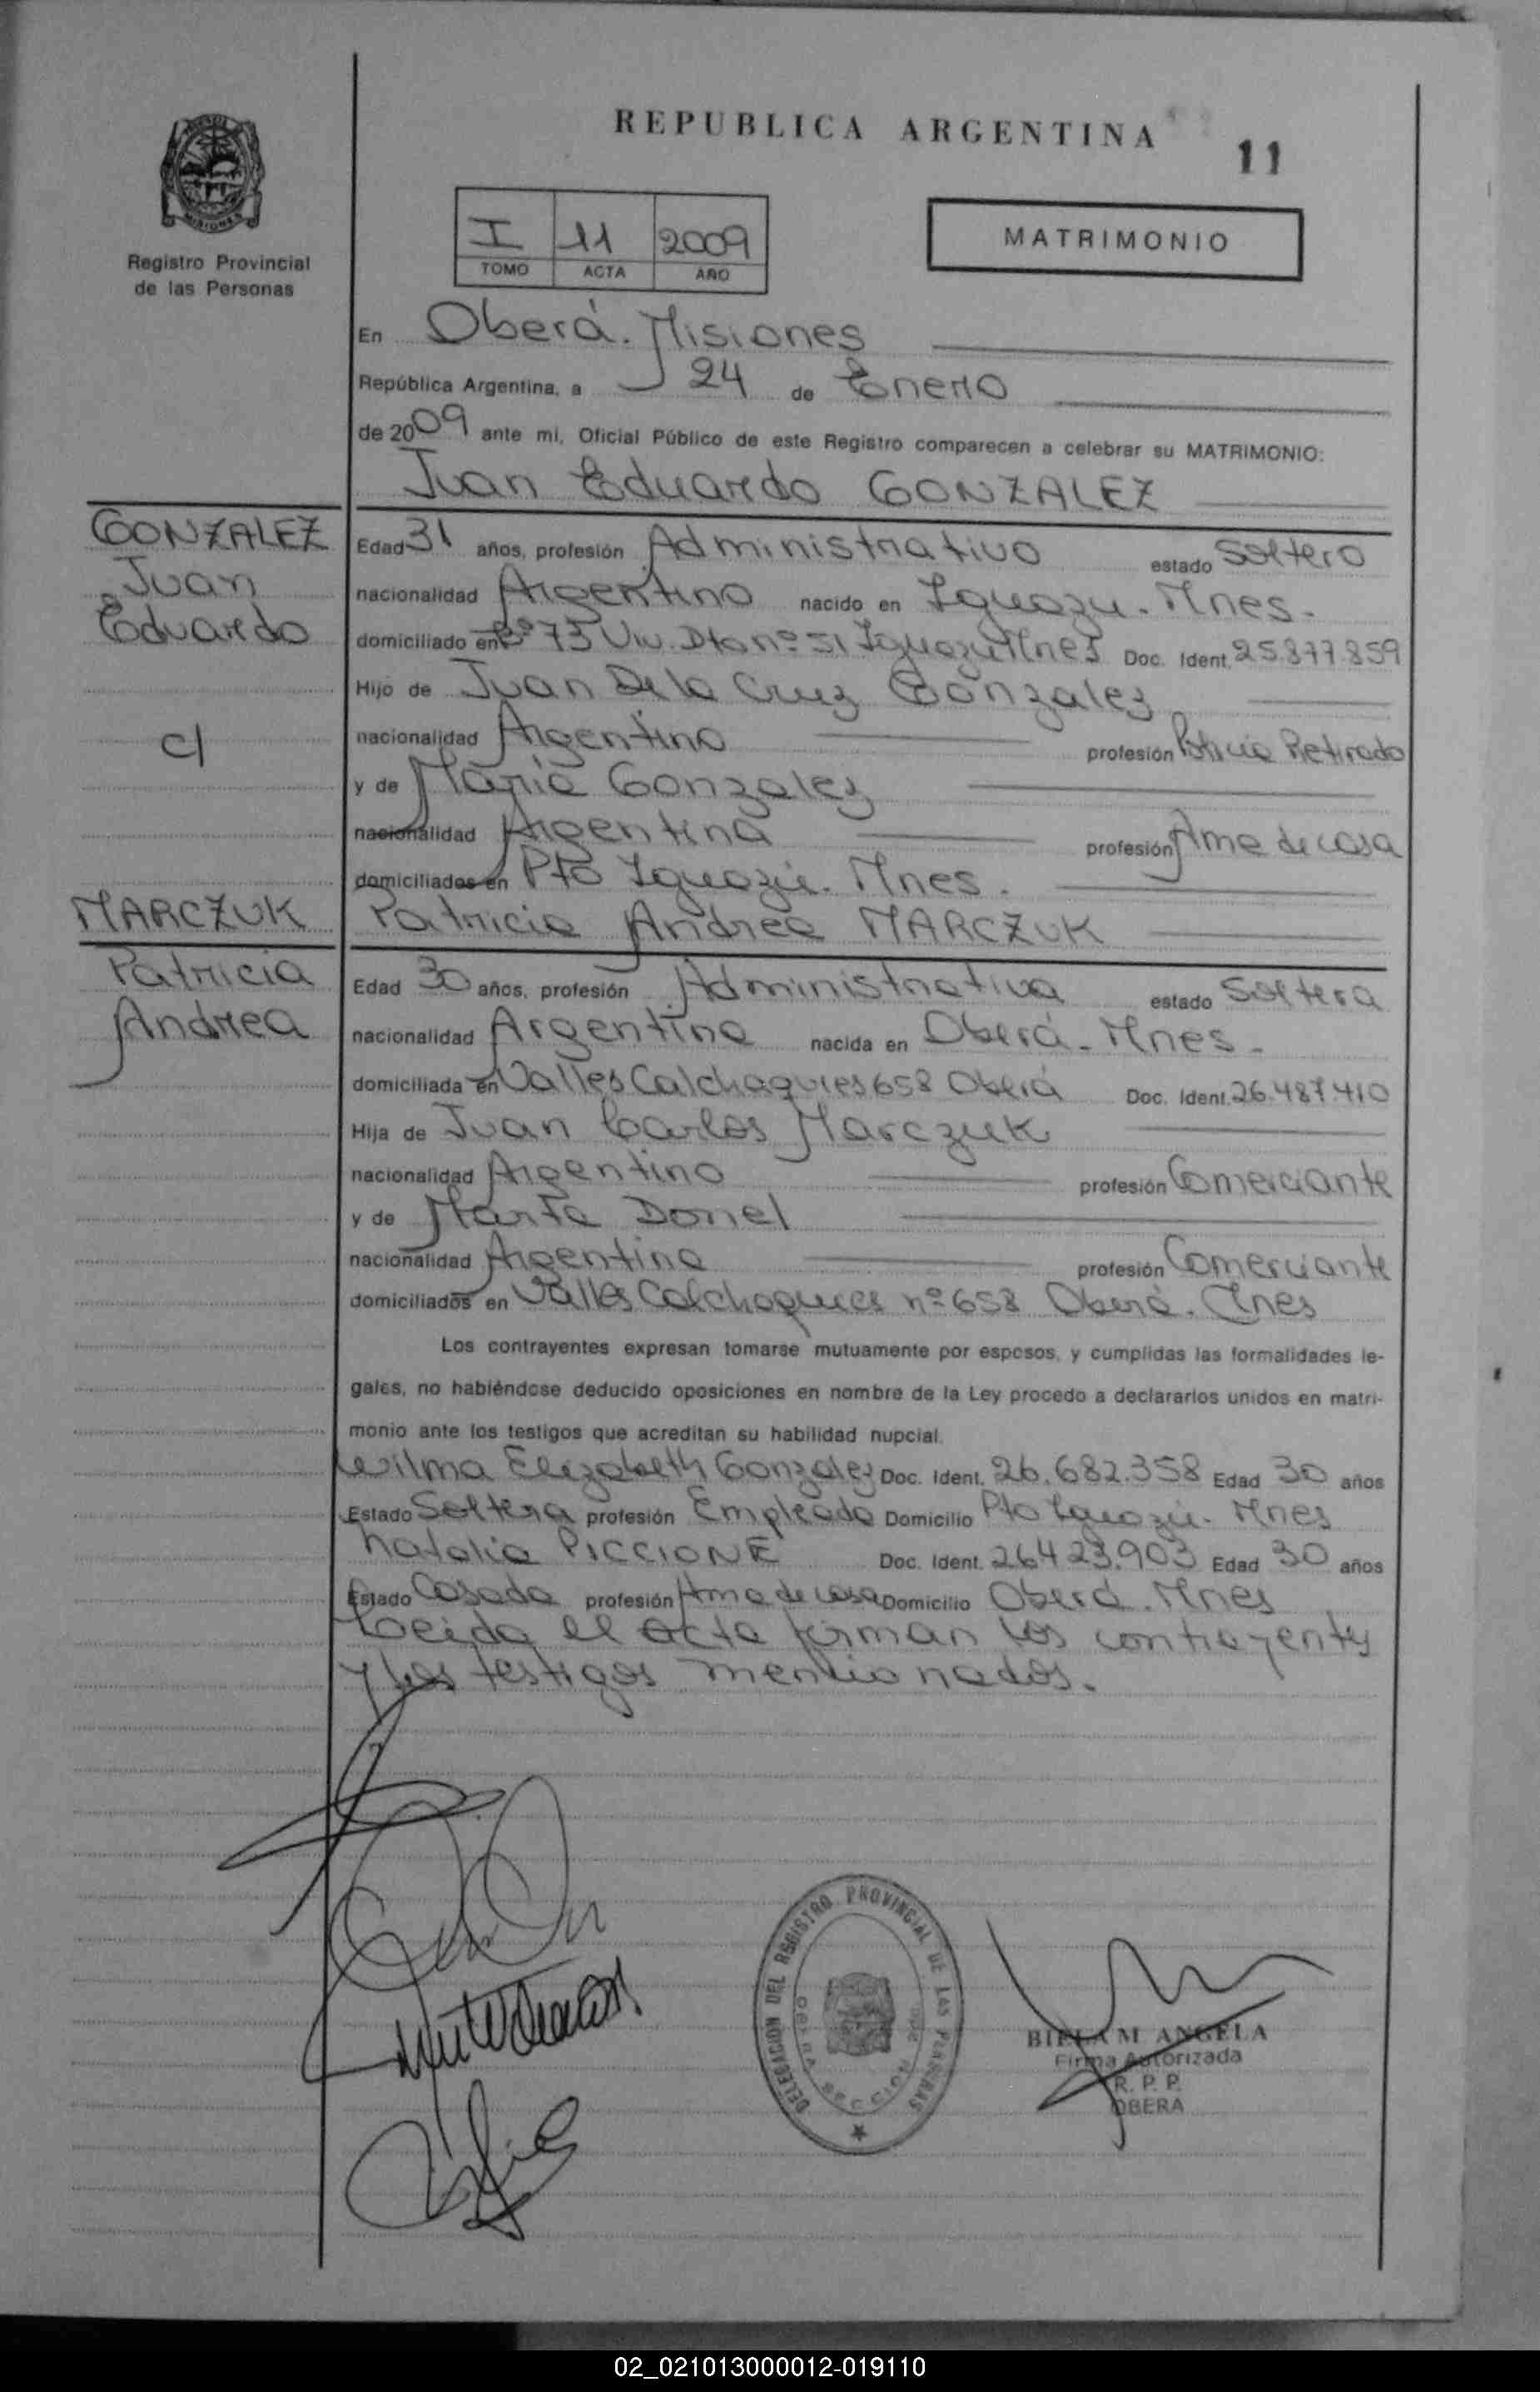 REPUBLICA ARGENTINA
11
MISIONES
Registro Provincial
de las Personas
I 11 2009
TOMO ACTA AÑO
MATRIMONIO
En Oberá. Misiones
República Argentina, a 24 de Enero
de 2009 ante mi, Oficial Público de este Registro comparecen a celebrar su MATRIMONIO:
Juan Eduardo GONZALEZ
GONZALEZ
Juan
Eduardo
c/
MARCZUK
Patricia
Andrea
Edad 31 años, profesión Administrativo estado Soltero
nacionalidad Argentino nacido en Iguazu. Mnes.
domiciliado en Bº 73 Viv. Dto nº 51 Iguazú Mnes Doc. Ident. 25.877.859
Hijo de Juan De la Cruz Gonzalez
nacionalidad Argentino profesión Policia Retirado
y de Maria Gonzalez
nacionalidad Argentina profesión Ama de casa
domiciliados en Pto Iguazú. Mnes.
Patricia Andrea MARCZUK
Edad 30 años, profesión Administrativa estado Soltera
nacionalidad Argentina nacida en Oberá. Mnes.
domiciliada en Valles Calchaquies 658 Oberá Doc. Ident. 26.487.410
Hija de Juan Carlos Marczuk
nacionalidad Argentino profesión Comerciante
y de Marta Donel
nacionalidad Argentina profesión Comerciante
domiciliados en Valles Calchaquies nº 658 Oberá. Mnes
Los contrayentes expresan tomarse mutuamente por esposos, y cumplidas las formalidades le-
gales, no habiéndose deducido oposiciones en nombre de la Ley procedo a declararlos unidos en matri-
monio ante los testigos que acreditan su habilidad nupcial.
Wilma Elizabeth Gonzalez Doc. Ident. 26.682.358 Edad 30 años
Estado Soltera profesión Empleada Domicilio Pto Iguazú. Mnes
Natalia PICCIONE Doc. Ident. 26423.903 Edad 30 años
Estado Casada profesión Ama de casa Domicilio Oberá. Mnes
Leida el acta firman los contrayentes
y los testigos mencionados.
DELEGACION DEL REGISTRO PROVINCIAL DE LAS PERSONAS
SECCION
BIELAM ANGELA
Firma Autorizada
R. P. P.
OBERA
02_021013000012-019110